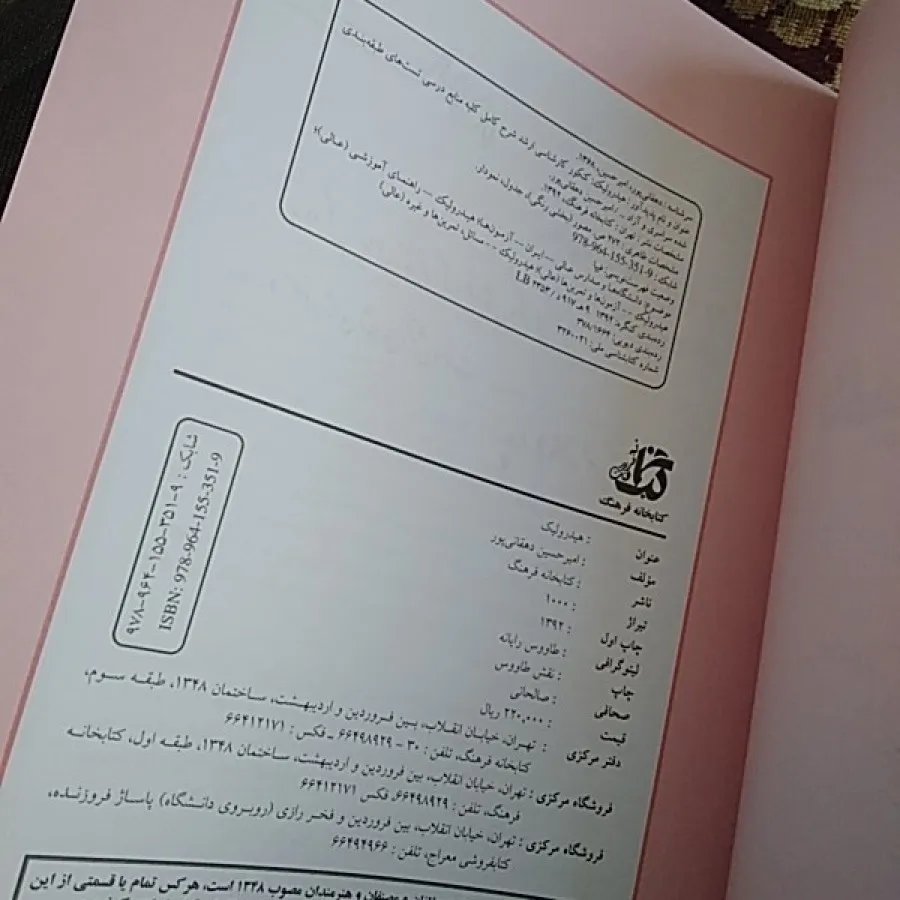 سرشناسه : دهقانی‌پور، امیرحسین، ۱۳۶۸
عنوان و نام پدیدآور : هیدرولیک: کنکور کارشناسی ارشد شرح کامل کلیه منابع درسی تست‌های طبقه‌بندی
شده سراسری و آزاد... / امیرحسین دهقانی‌پور.
مشخصات نشر : تهران : کتابخانه فرهنگ، ۱۳۹۲.
مشخصات ظاهری : ۲۷۲ ص. مصور (بخشی رنگی)، جدول، نمودار.
شابک : 978-964-155-351-9
وضعیت فهرست‌نویسی: فیپا
موضوع: دانشگاه‌ها و مدارس عالی -- ایران -- آزمون‌ها؛ هیدرولیک -- راهنمای آموزشی (عالی)؛
هیدرولیک -- آزمون‌ها و تمرین‌ها (عالی)؛ هیدرولیک -- مسائل، تمرین‌ها و غیره (عالی)
رده‌بندی کنگره: ۱۳۹۲ ۹هـ ۹۱۷د / LB ۲۳۵۳
رده‌بندی دیویی: ۳۷۸/۱۶۶۴
شماره کتابشناسی ملی: ۳۲۶۰۰۲۱
کتابخانه فرهنگ
عنوان : هیدرولیک
مؤلف : امیرحسین دهقانی‌پور
ناشر : کتابخانه فرهنگ
تیراژ : ۱۰۰۰
چاپ اول : ۱۳۹۲
لیتوگرافی : طاووس رایانه
چاپ : نقش طاووس
صحافی : صالحانی
قیمت : ۲۲۰,۰۰۰ ریال
دفتر مرکزی : تهران، خیابان انقلاب، بین فروردین و اردیبهشت، ساختمان ۱۳۴۸، طبقه سوم،
کتابخانه فرهنگ، تلفن : ۳۰ - ۶۶۴۹۸۹۲۹ ـ فکس : ۶۶۴۱۲۱۷۱
فروشگاه مرکزی : تهران، خیابان انقلاب، بین فروردین و اردیبهشت، ساختمان ۱۳۴۸، طبقه اول، کتابخانه
فرهنگ، تلفن : ۶۶۴۹۸۹۲۹، فکس ۶۶۴۱۲۱۷۱
فروشگاه مرکزی : تهران، خیابان انقلاب، بین فروردین و فخر رازی (روبروی دانشگاه) پاساژ فروزنده،
کتابفروشی معراج، تلفن : ۶۶۴۹۴۹۶۶
شابک : ۹-۳۵۱-۱۵۵-۹۶۴-۹۷۸
ISBN: 978-964-155-351-9
و مصنفان و هنرمندان مصوب ۱۳۴۸ است، هرکس تمام یا قسمتی از این